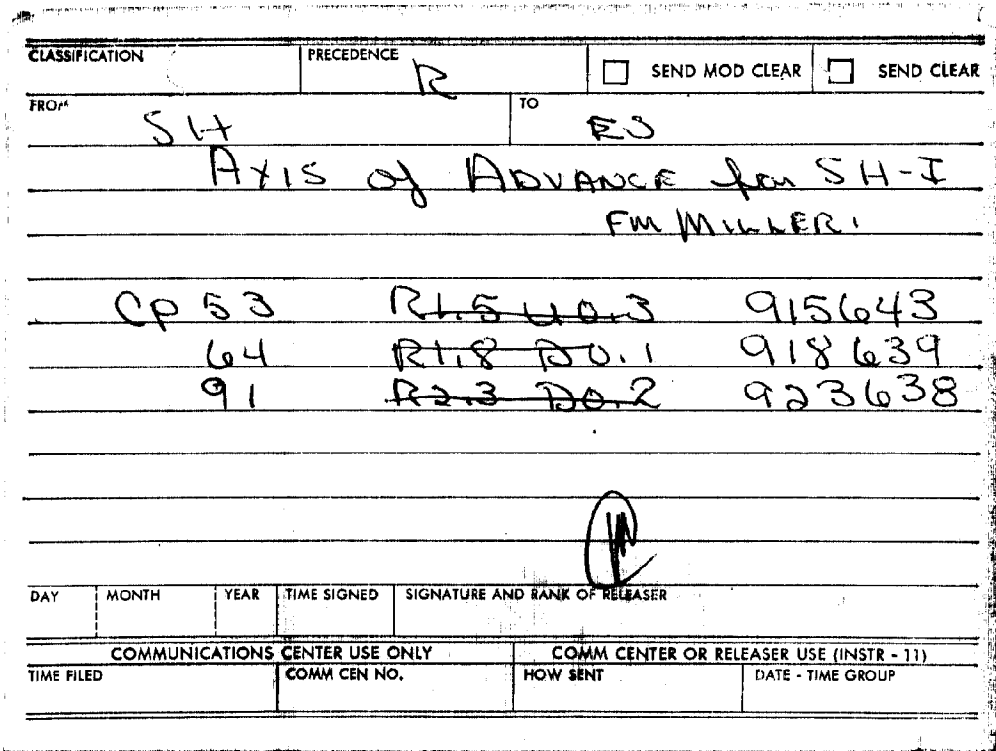 CLASSIFICATION PRECEDENCE R SEND MOD CLEAR SEND CLEAR
FROM SH TO ES
AXIS of ADVANCE for SH-I
FM MILLER.
CP 53 R1.5 U0.3 915643
64 R1.8 D0.1 918639
91 R2.3 D0.2 923638
DAY MONTH YEAR TIME SIGNED SIGNATURE AND RANK OF RELEASER
COMMUNICATIONS CENTER USE ONLY COMM CENTER OR RELEASER USE (INSTR - 11)
TIME FILED COMM CEN NO. HOW SENT DATE - TIME GROUP